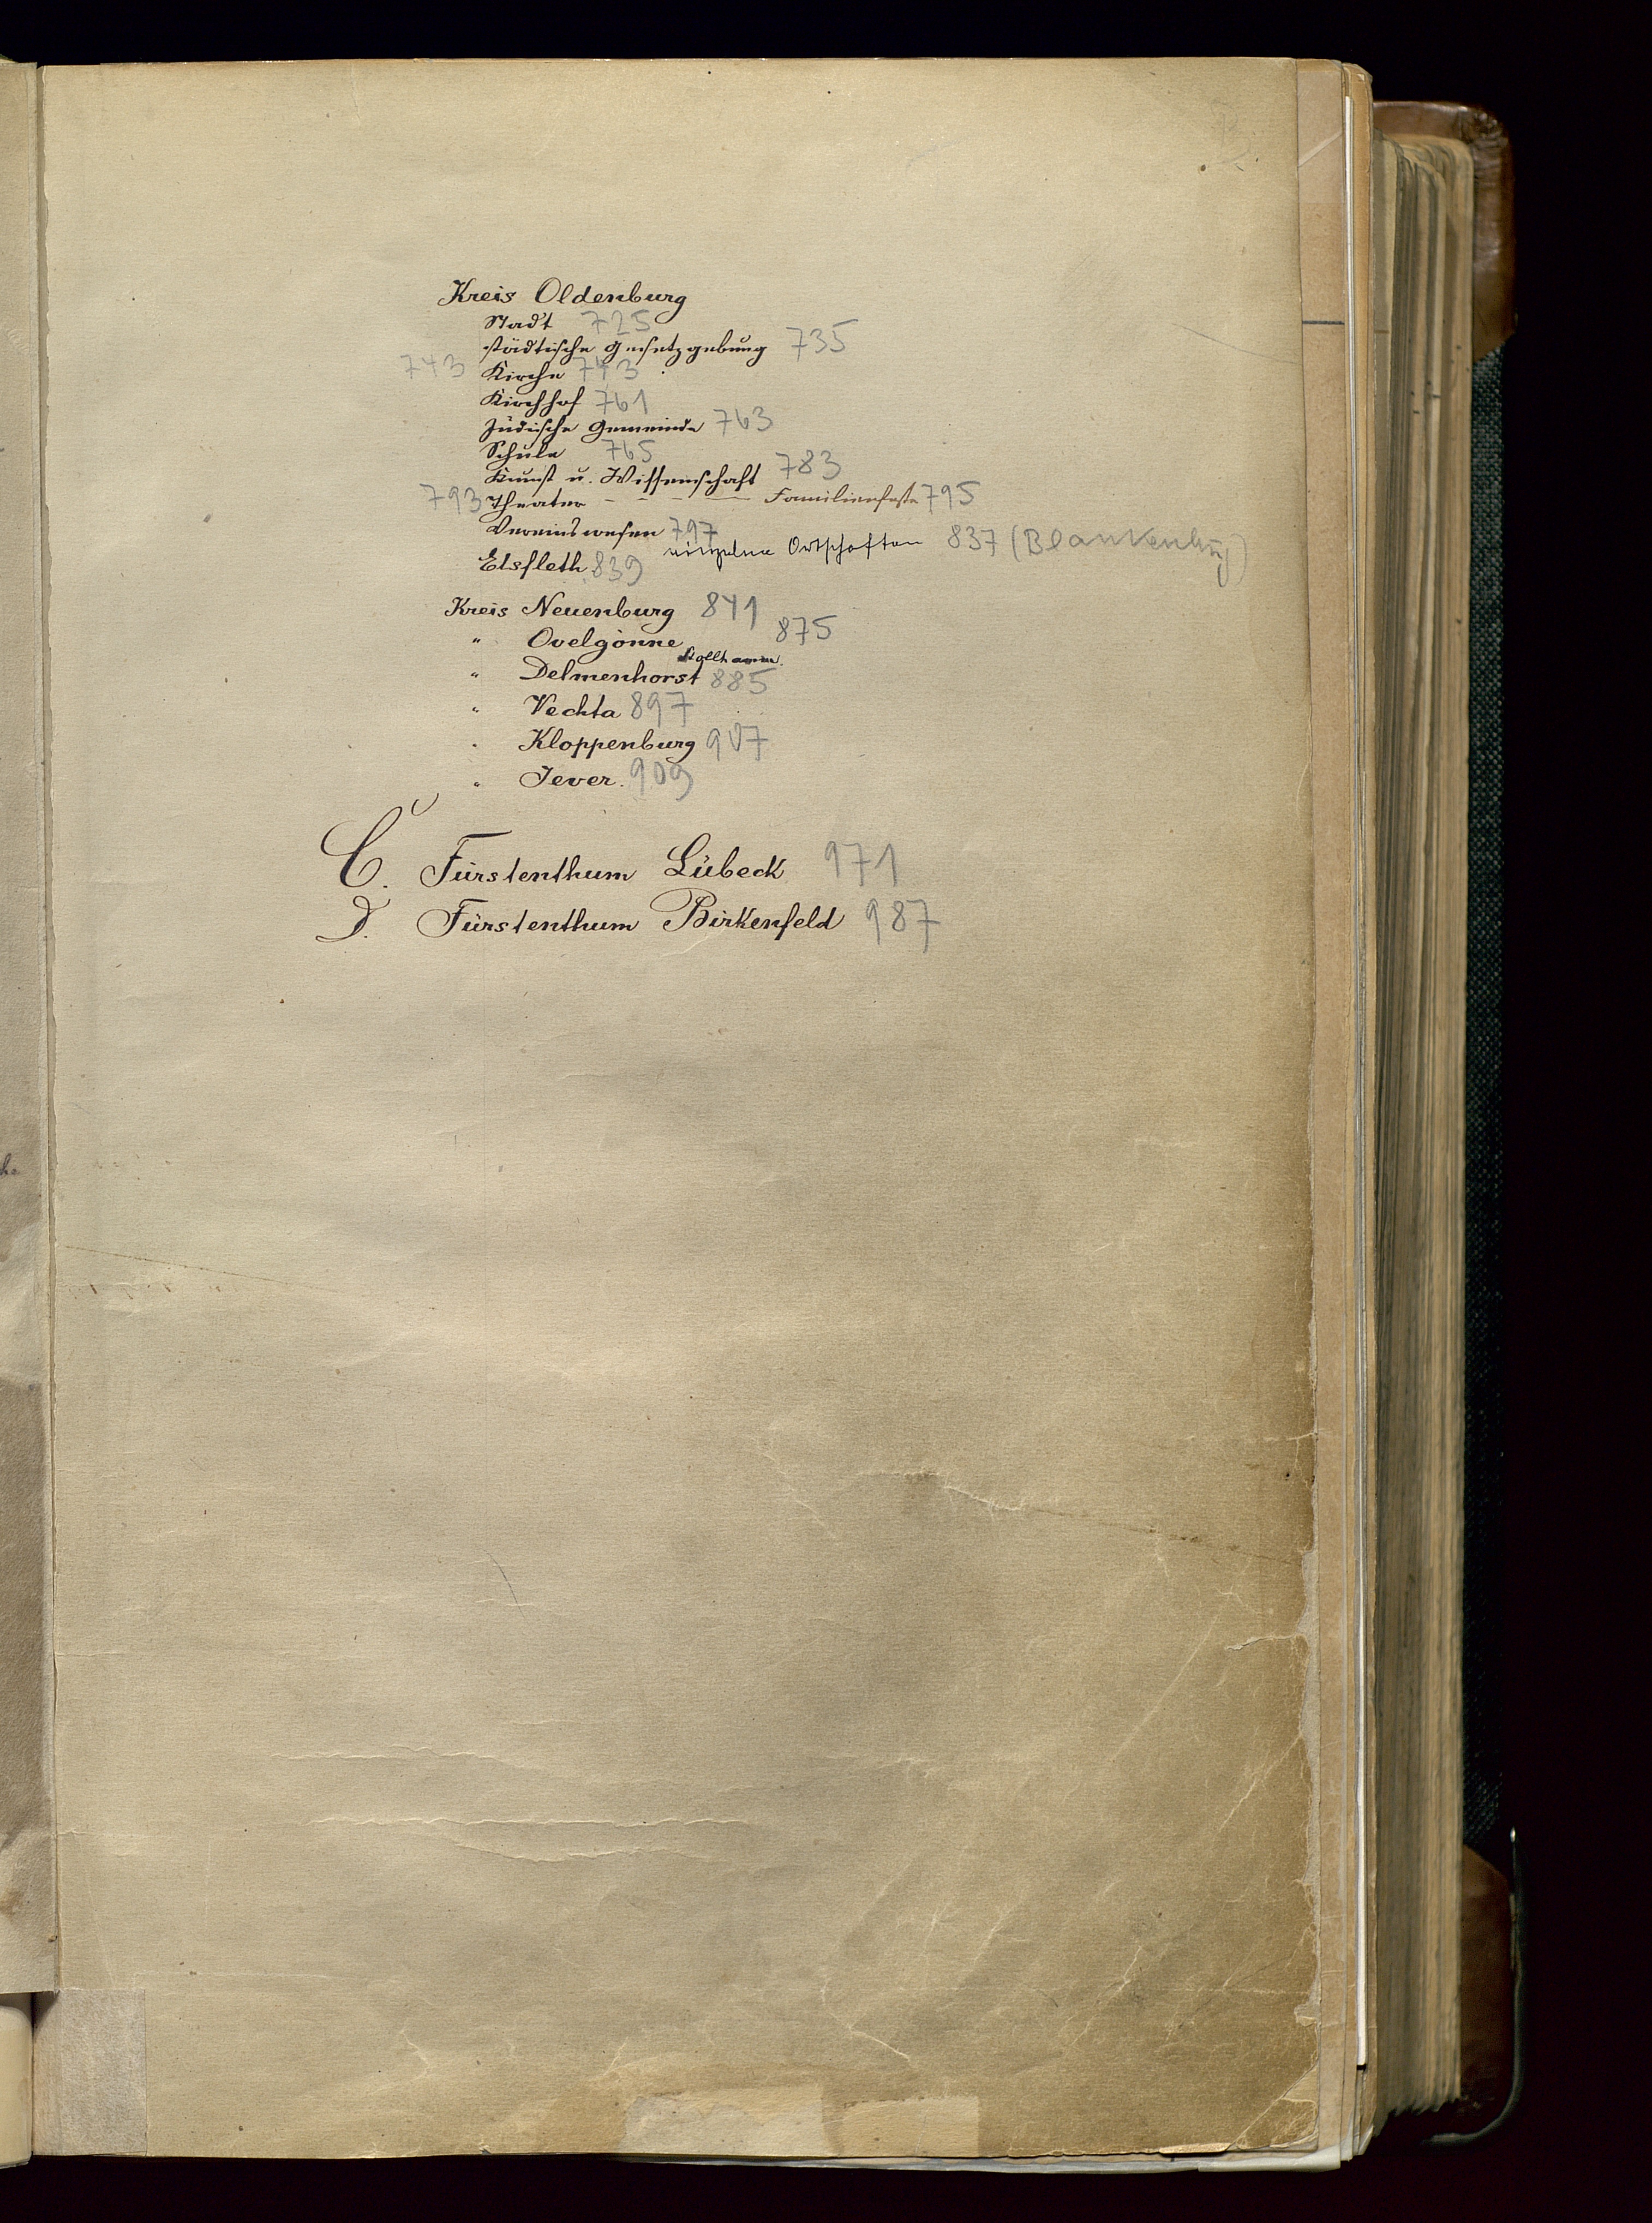 Kreis Oldenburg
Stadt 725
städtische Gesetzgebung 735
743 Kirche 743
Kirchhof 761
Jüdische Gemeinde 763
Schule 765
Kunst u. Wissenschaft 783
793 Theater - - - - Familienfeste 795
Vereinswesen 797
einzelne Ortschaften 837 (Blankenburg)
Elsfleth 839
Kreis Neuenburg 841
" Ovelgönne 875
Stollhamm.
" Delmenhorst 885
" Vechta 897
" Kloppenburg 907
" Jever. 909
C. Fürstenthum Lübeck 971
D. Fürstenthum Birkenfeld 987